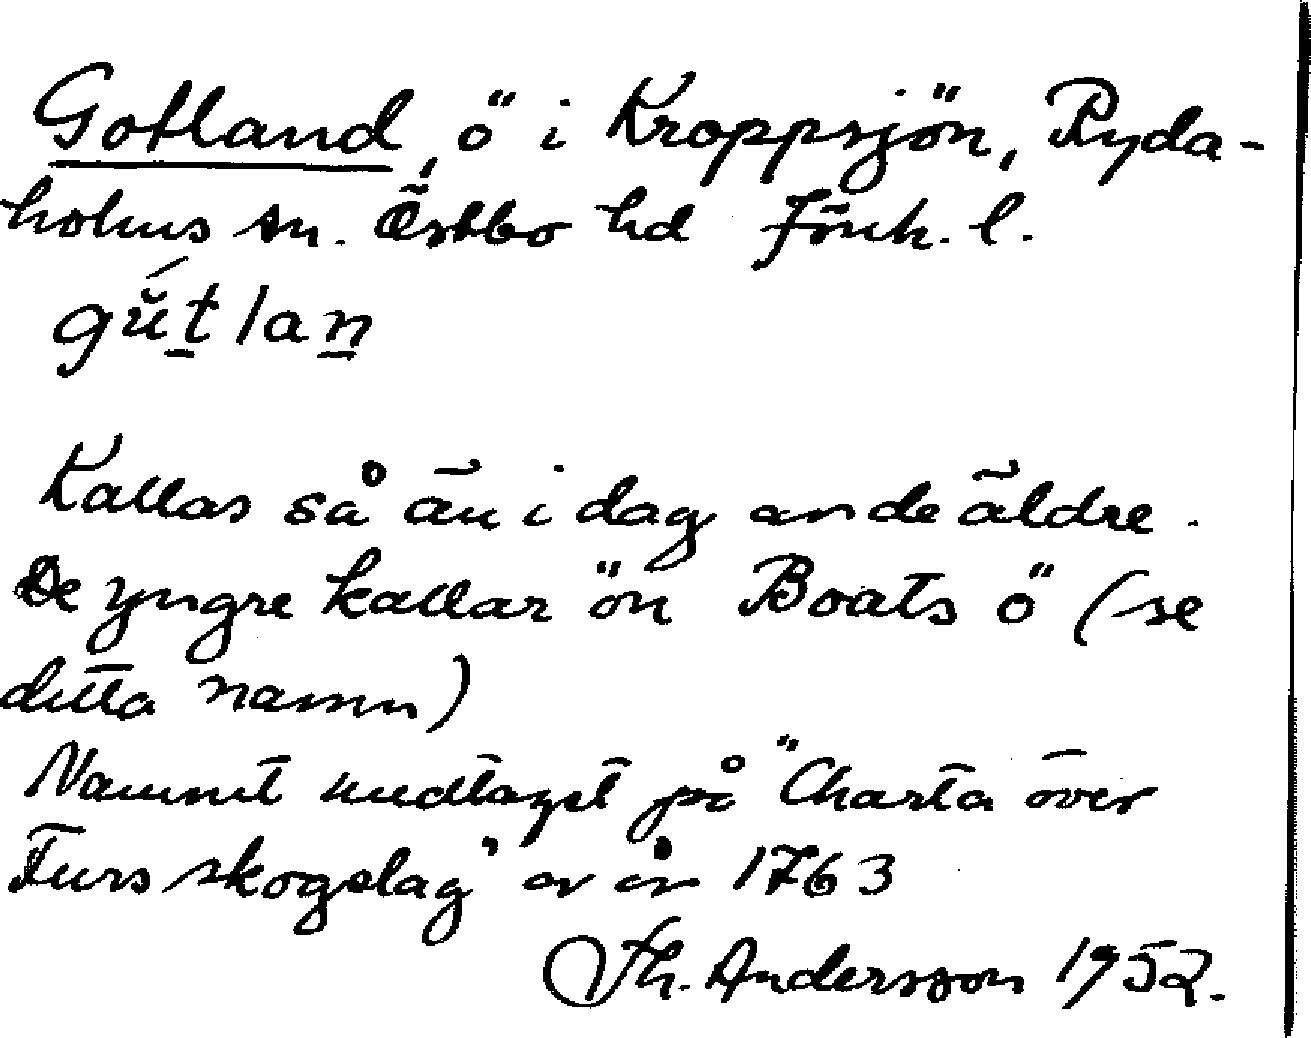 Gotland, ö i Kroppsjön, Ryda-
holms sn. Östbo hd Jönk. l.
gŭ́tlan
Kallas så än i dag av de äldre.
De yngre kallar ön Boats ö (se
detta namn)
Namnet medtaget på "Charta över
Furs skogslag" av år 1763
Th. Andersson 1952.